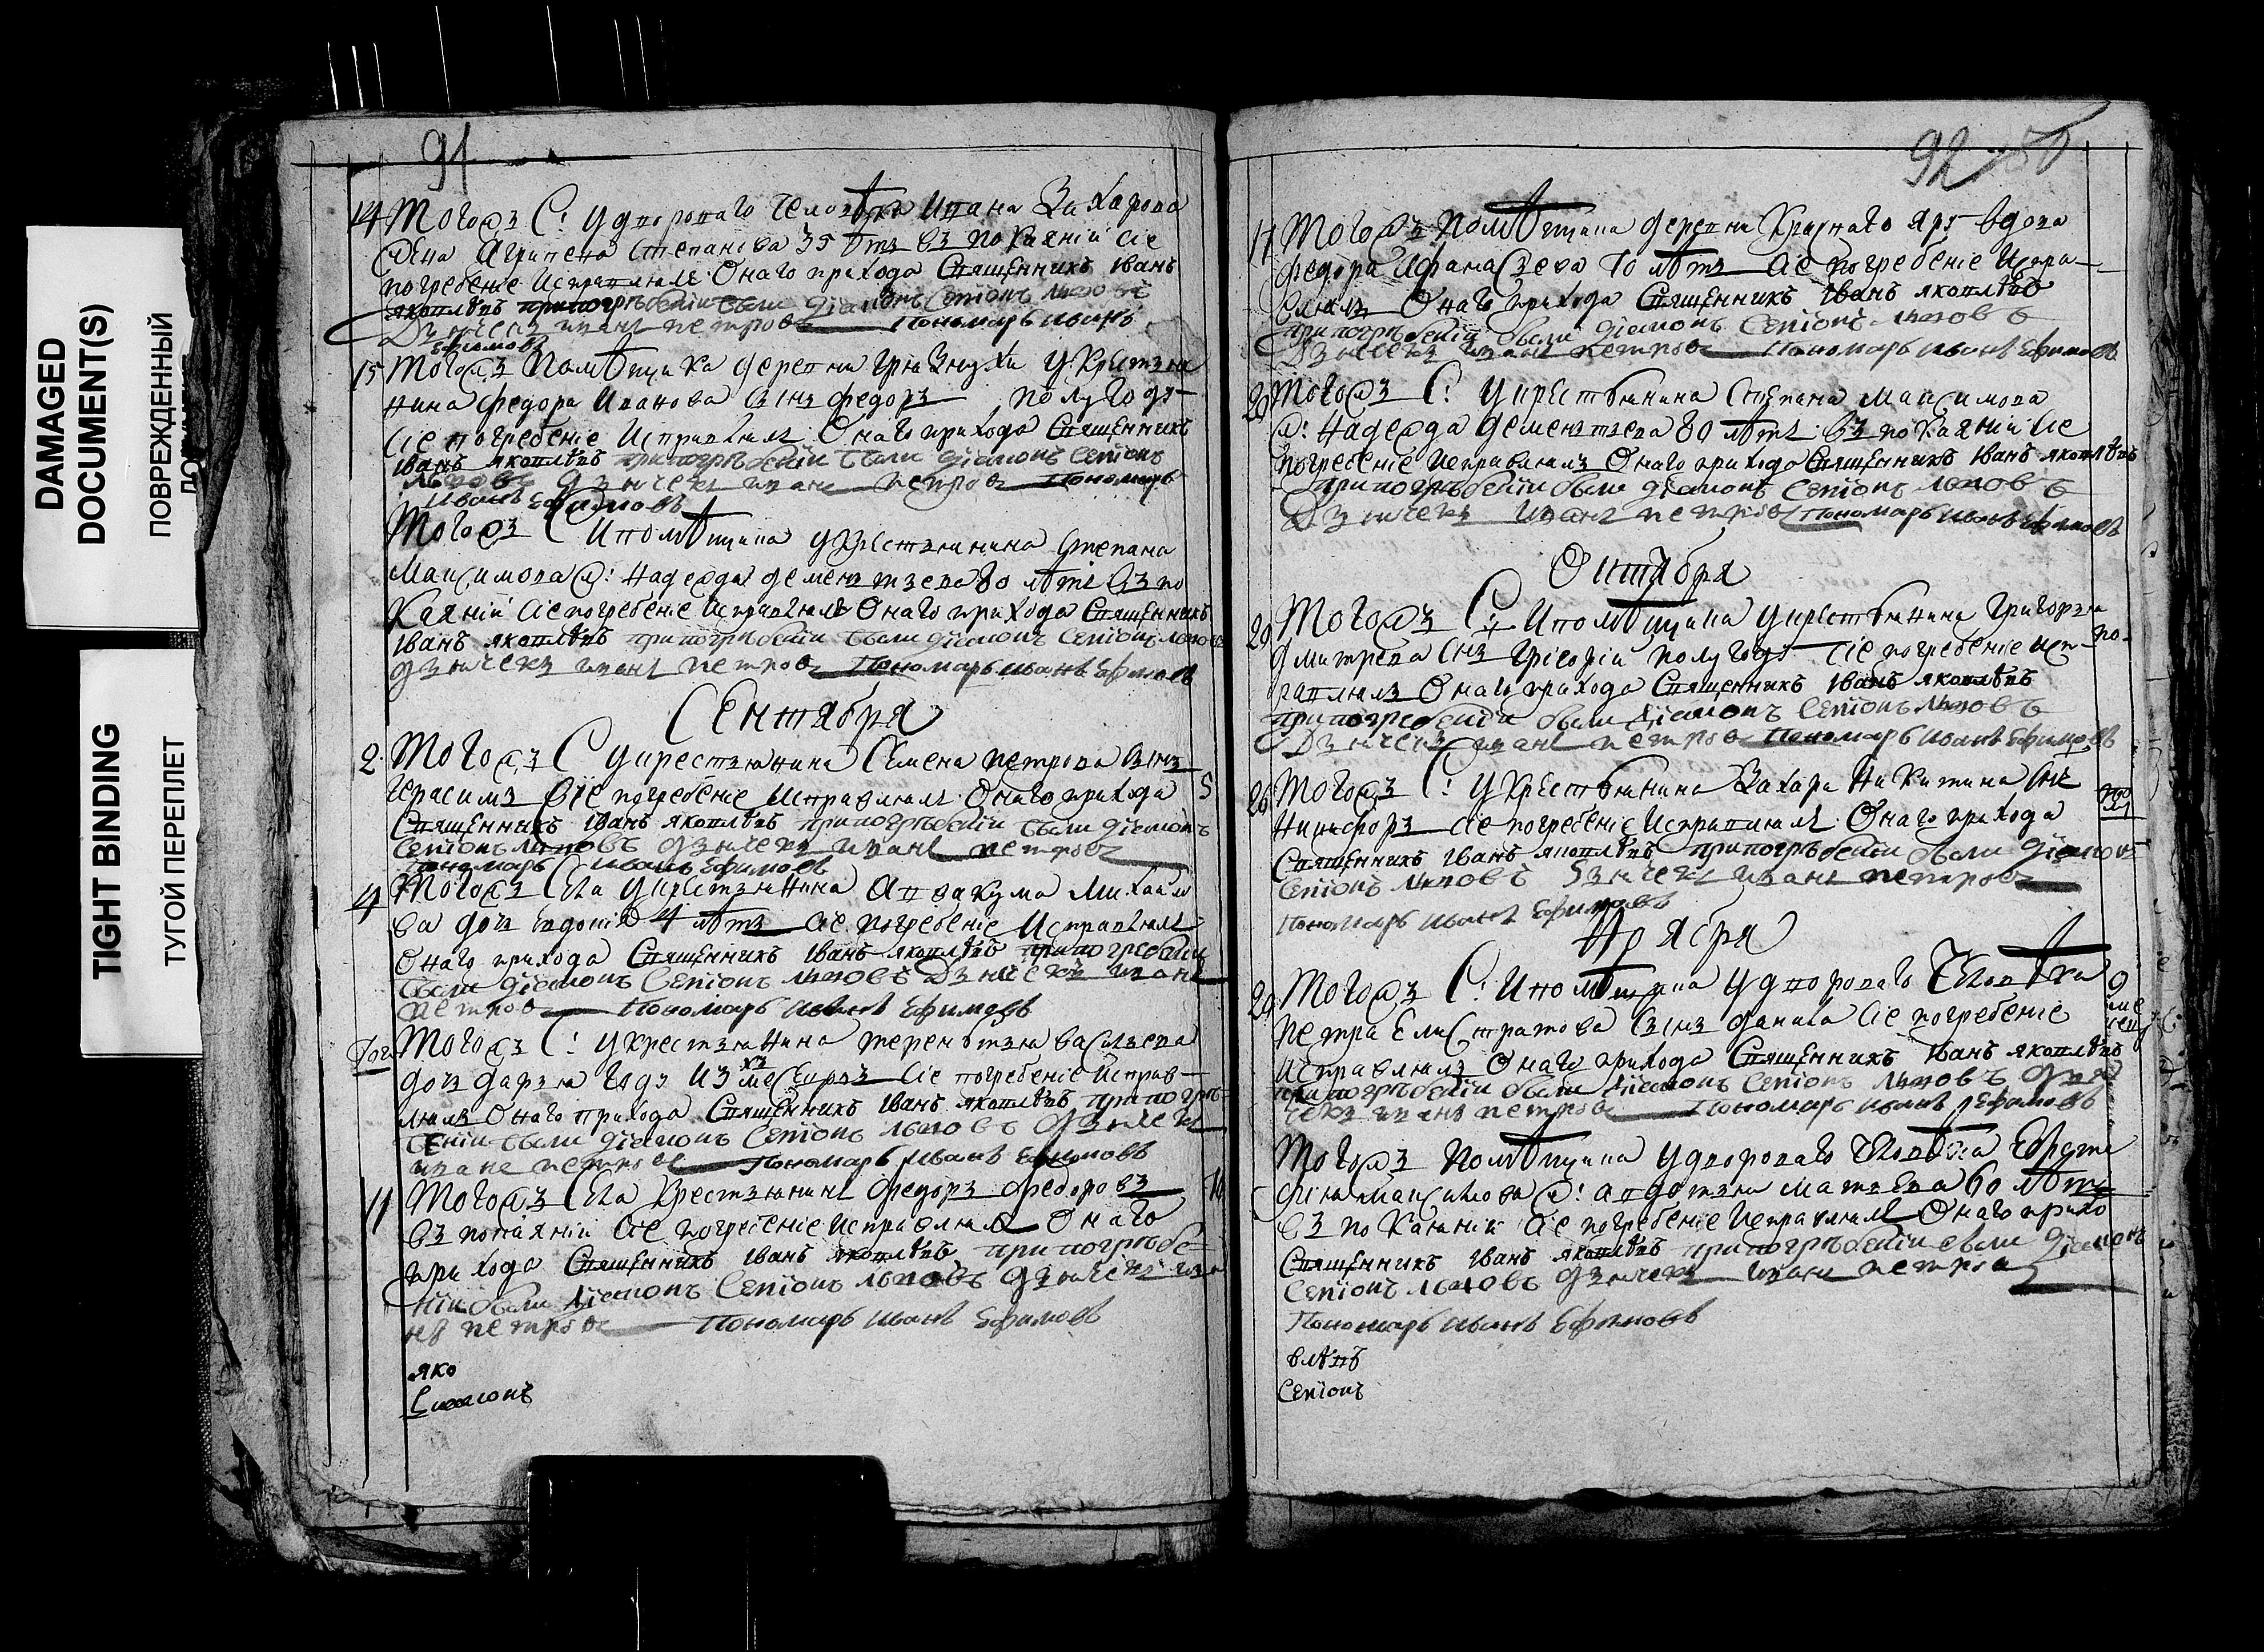 DAMAGED
DOCUMENT(S)
ПОВРЕЖДЕННЫЙ
TIGHT BINDING
ТУГОЙ ПЕРЕПЛЕТ
91
14 Тогожъ С: у дворового человѣка Ивана Захарова
жена Агрипена Степанова 35 лѣтъ въ покаяніи сіе
погребеніе исправлялъ онаго прихода Священникъ Іванъ
яковлѣвъ при погрѣбеніи были діаконъ Сепіонъ львовъ
Дьячекъ иванъ петровъ Пономарь иванъ
Ефимовъ
15 Тогожъ помѣщика деревни Грязнухи у крестья
нина Федора Иванова сынъ федоръ полугоду
сіе погребеніе исправлялъ Онаго прихода Священникъ
Іванъ яковлѣвъ при погрѣбеніи были діаконъ Сепіонъ
львовъ дьячекъ иванъ петровъ Пономарь
Иванъ Ефимовъ
Тогожъ С и помѣщика у крестьянина Степана
Максимова ж: надежда дементьева 80 лѣтъ въ по
каяній сіе погребеніе исправлялъ Онаго прихода Священникъ
Іванъ яковлѣвъ при погрѣбеніи были діаконъ Сепіонъ львовъ
дьячекъ иванъ петровъ Пономарь иванъ Ефимовъ
Сентября
2 Тогожъ С у крестьянина Семена петрова сынъ
Герасимъ сіе погребеніе исправлялъ Онаго прихода 5
Священникъ Іванъ яковлѣвъ при погрѣбеніи были діаконъ
Сепіонъ львовъ дьячекъ иванъ петровъ
Пономарь иванъ Ефимовъ
4 Тогожъ Села у крестьянина Аввакума Михайло
ва дочь 4 лѣтъ сіе погребеніе исправлялъ
Онаго прихода Священникъ Іванъ яковлѣвъ при погребеніи
были діаконъ Сепіонъ львовъ Дьячекъ иванъ
петровъ Пономарь иванъ Ефимовъ
Тогожъ С: у крестьянина терентья васильева
дочь дарья году изъ сіе погребеніе исправ
лялъ Онаго прихода Священникъ Іванъ яковлѣвъ при погрѣ
беніи были діаконъ Сепіонъ львовъ дьячекъ
иванъ петровъ Пономарь Иванъ Ефимовъ
11 Тогожъ Села крестьянинъ федоръ федоровъ
въ покаяній сіе погребеніе исправлялъ Онаго
прихода Священникъ Іванъ яковлѣвъ при погрѣбе
ніи были діаконъ Сепіонъ львовъ дьячекъ ива
нъ петровъ Пономарь иванъ Ефимовъ
яко
92
17 Тогожъ помѣщика деревни Краснаго яру вдова
федора Афанасьева 70 лѣтъ сіе погребеніе испра
влялъ Онаго прихода Священникъ Іванъ яковлѣвъ
при погрѣбеніи были діаконъ Сепіонъ львовъ
Дьячекъ иванъ петровъ Пономарь иванъ Ефимовъ
Тогожъ С: у крестьянина Степана максимова
ж: надежда дементьева 80 лѣтъ въ покаяній сіе
погребеніе исправлялъ Онаго прихода Священникъ Іванъ яковлѣвъ
при погрѣбеніи были діаконъ Сепіонъ львовъ
Дьячекъ иванъ петровъ Пономарь иванъ Ефимовъ
Октября
Тогожъ С: и помѣщика у крестьянина Григорья
дмитрева снъ Грігорій полугоду сіе погребеніе исп
равлялъ Онаго прихода Священникъ Іванъ яковлѣвъ
при погребеніи были діаконъ Сепіонъ львовъ
Дьячекъ иванъ петровъ Пономарь иванъ Ефимовъ
Тогожъ С: у крестьянина Захара никитина снъ
никифоръ сіе погребеніе исправлялъ Онаго прихода
Священникъ Іванъ яковлѣвъ при погрѣбеніи были діаконъ
Сепіонъ львовъ дьячекъ иванъ петровъ
Пономарь иванъ Ефимовъ
Ноября
Тогожъ С: и помѣщика у дворового человѣка
петра Елистратова сынъ данила сіе погребеніе
исправлялъ Онаго прихода Священникъ Іванъ яковлѣвъ
при погрѣбеніи были діаконъ Сепіонъ львовъ дья
чекъ иванъ петровъ Пономарь иванъ Ефимовъ
Тогожъ помѣщика у дворового человѣка
максимова ж: авдотья матвева 60 лѣтъ
въ покаяніи сіе погребеніе исправлялъ Онаго прихо
Священникъ Іванъ яковлѣвъ при погрѣбеніи были діаконъ
Сепіонъ львовъ дьячекъ иванъ петровъ
Пономарь иванъ Ефимовъ
влѣвъ
Сепіонъ